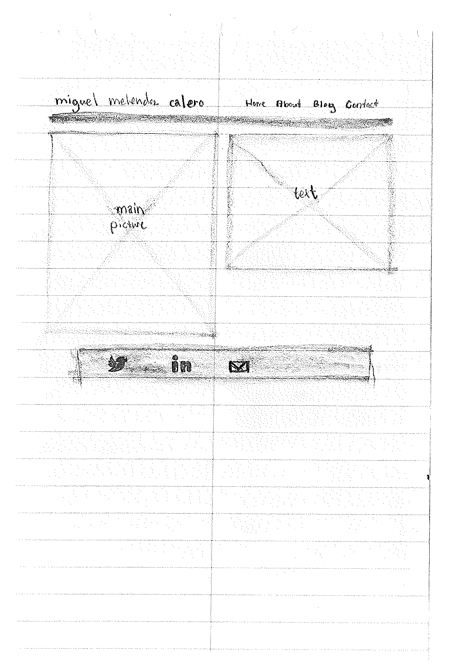 miguel melendez calero
Home About Blog Contact
main
picture
text
in